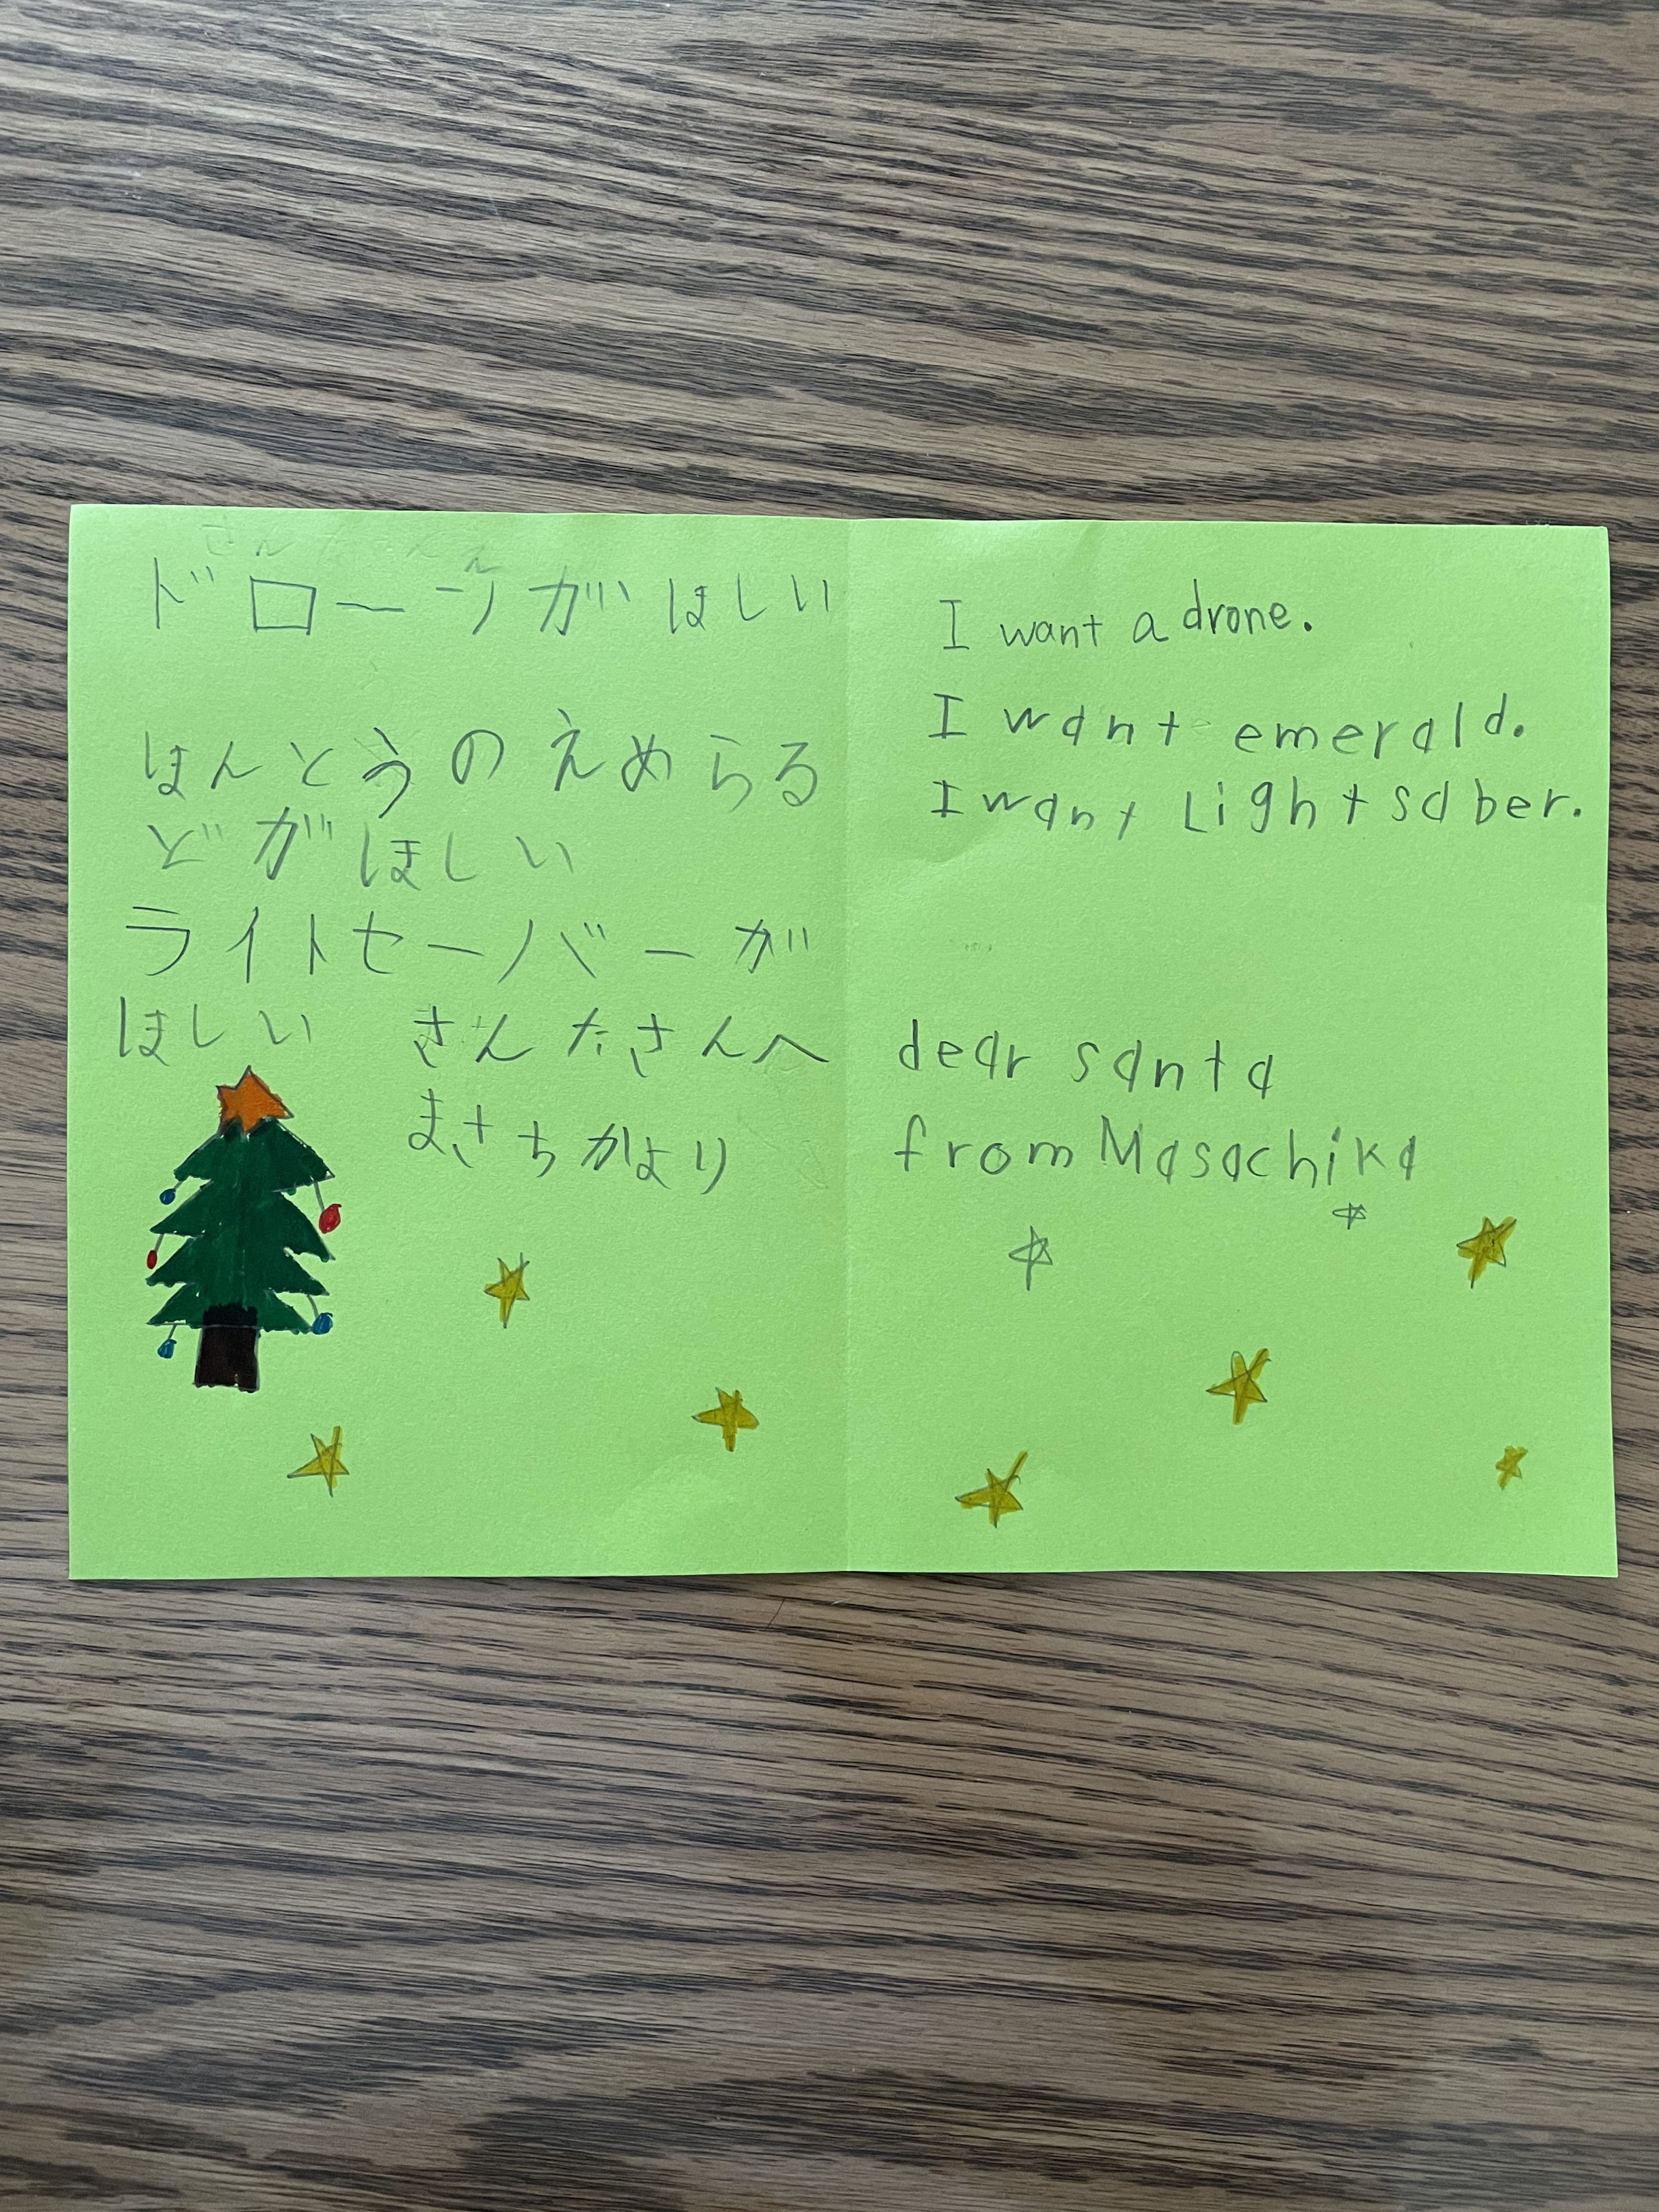 ドローンがほしい
ほんとうのえめらる
どがほしい
ライトセーバーが
ほしい さんたさんへ
まさちかより
I want a drone.
I want emerald.
I want Lightsaber.
dear santa
from Masachika